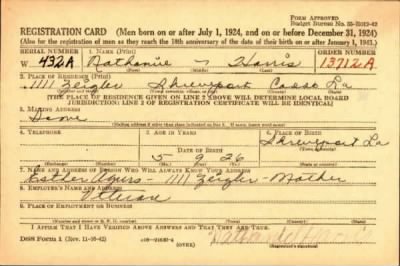 FORM APPROVED
REGISTRATION CARD (Men born on or after July 1, 1924, and on or before December 31, 1924)
(Also for the registration of men as they reach the 18th anniversary of the date of their birth on or after January 1, 1943.)
SERIAL NUMBER 1. NAME (Print) ORDER NUMBER
W 432A Nathanie Harris 13712A
(First) (Middle) (Last)
2. PLACE OF RESIDENCE (Print)
1111 Zeigler Shreveport Caddo La
[THE PLACE OF RESIDENCE GIVEN ON LINE 2 ABOVE WILL DETERMINE LOCAL BOARD
JURISDICTION; LINE 2 OF REGISTRATION CERTIFICATE WILL BE IDENTICAL]
3. MAILING ADDRESS
4. TELEPHONE 5. AGE IN YEARS 6. PLACE OF BIRTH
Shreveport
DATE OF BIRTH
La
5 9 26
7. NAME AND ADDRESS OF PERSON WHO WILL ALWAYS KNOW YOUR ADDRESS
Esther 1111 Zeigler - Mother
8. EMPLOYER'S NAME AND ADDRESS
9. PLACE OF EMPLOYMENT OR BUSINESS
I AFFIRM THAT I HAVE VERIFIED ABOVE ANSWERS AND THAT THEY ARE TRUE.
DSS Form 1 (Rev. 11-16-42) (OVER)